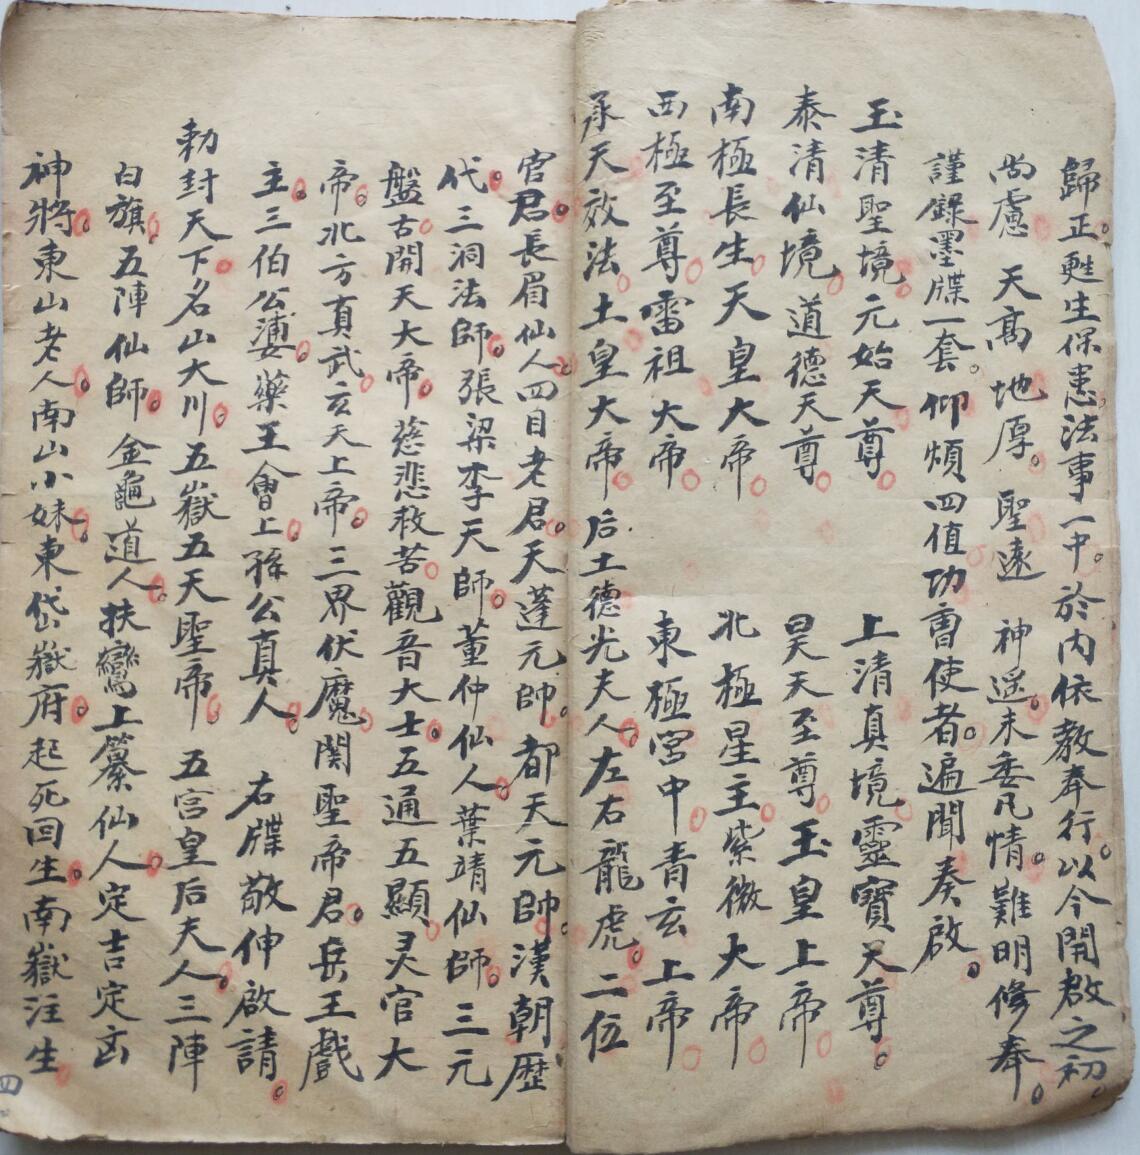 歸正。甦生保患。法事一中。於內依教奉行。以今開啟之初。
尚慮　天高地厚。聖遠　神遥。未委凡情。難明修奉。
謹錄墨牒一套。仰煩四值功曹使者。遍聞奏啟。
玉清聖境。元始天尊。　上清真境。靈寶天尊。
泰清仙境。道德天尊。　昊天至尊。玉皇上帝。
南極長生。天皇大帝。　北極星主。紫微大帝。
西極至尊。雷祖大帝。　東極宮中。青玄上帝。
承天效法。土皇大帝。后土德光夫人。左右龍虎。二位
官君。長眉仙人。四目老君。天蓬元帥。都天元帥。漢朝歷
代。三洞法師。張梁李天師。董仲仙人。葉靖仙師。三元
盤古。開天大帝。慈悲救苦。觀音大士。五通五顯。灵官大
帝。北方真武。玄天上帝。三界伏魔。関聖帝君。岳王戲
主。三伯公婆。藥王會上。孫公真人。　右牒敬伸啟請。
勅封天下。名山大川。五嶽五天聖帝。五宮皇后夫人。三陣
白旗。五陣仙師。金龜道人。扶鸞上纂仙人。定吉定凶
神將。東山老人。南山小妹。東岱嶽府。起死回生。南嶽注生。
四